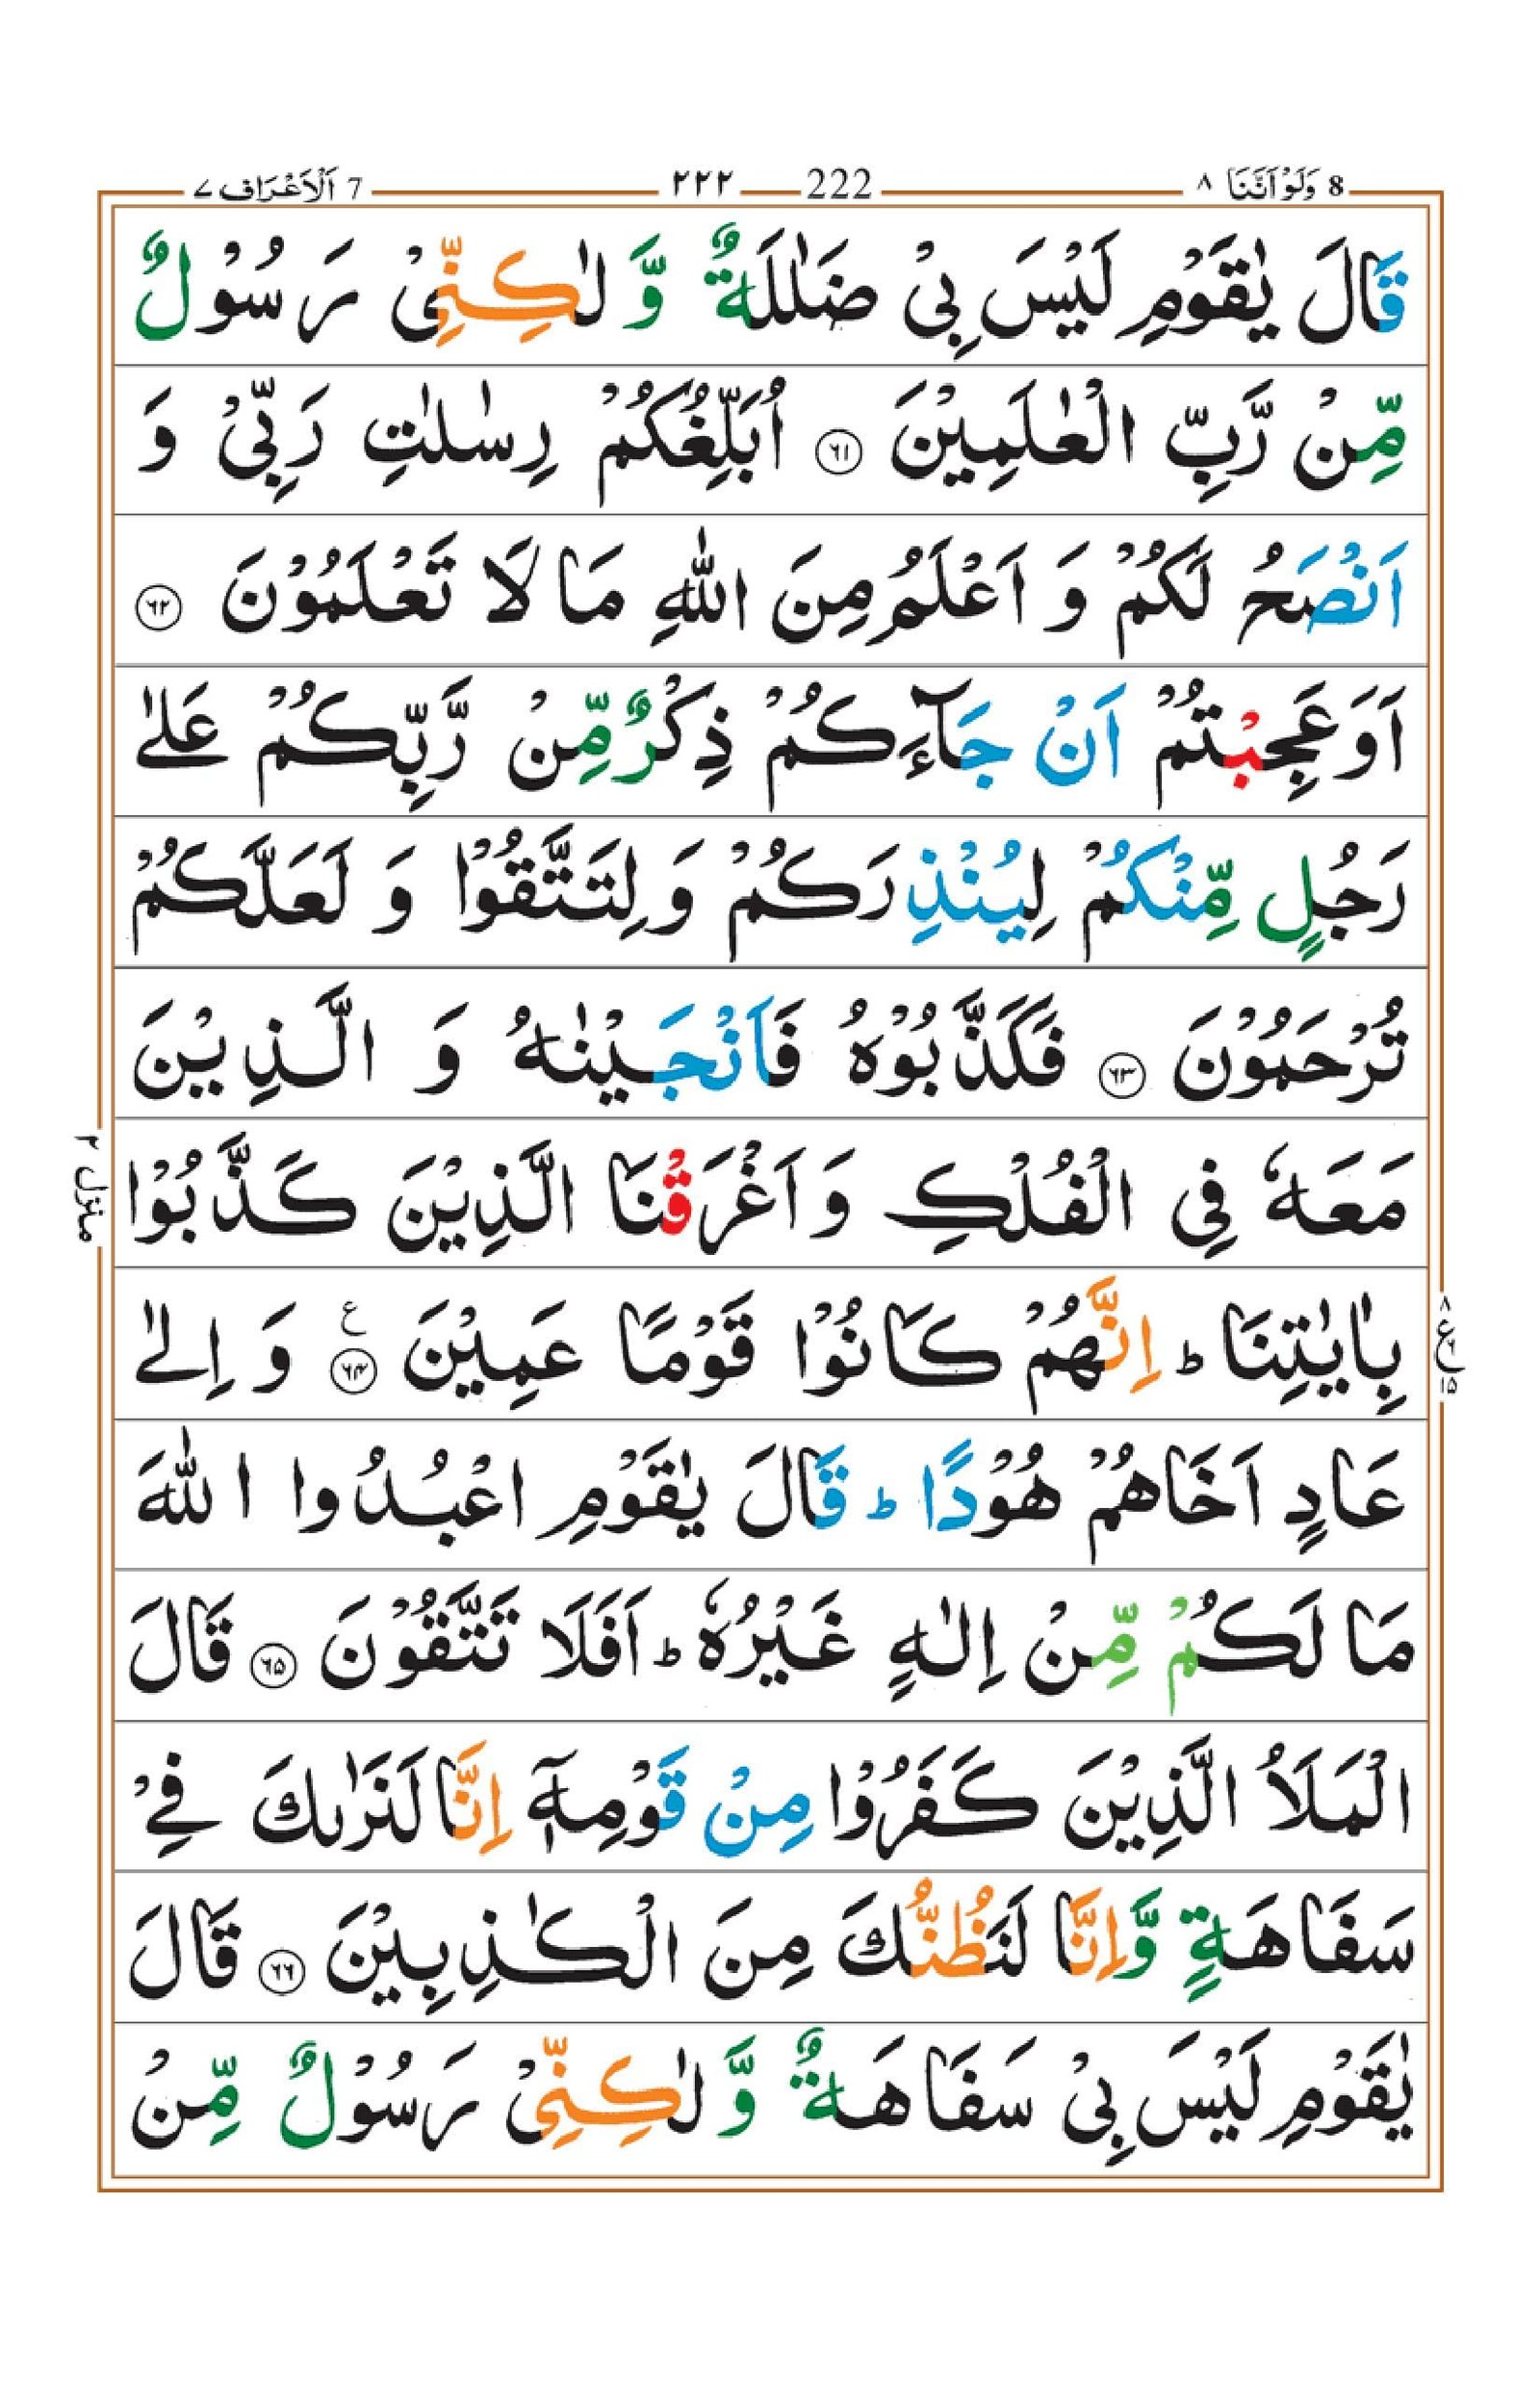 8 وَلَوْ اَنَّنَا ٨ 222 ٢٢٢ 7 اَلْاَعْرَاف ٧
قَالَ يٰقَوْمِ لَيْسَ بِىْ ضَلٰلَةٌ وَّ لٰكِنِّىْ رَسُوْلٌ
مِّنْ رَّبِّ الْعٰلَمِيْنَ ۝٦١ اُبَلِّغُكُمْ رِسٰلٰتِ رَبِّىْ وَ
اَنْصَحُ لَكُمْ وَ اَعْلَمُ مِنَ اللّٰهِ مَا لَا تَعْلَمُوْنَ ۝٦٢
اَوَعَجِبْتُمْ اَنْ جَآءَكُمْ ذِكْرٌ مِّنْ رَّبِّكُمْ عَلٰى
رَجُلٍ مِّنْكُمْ لِيُنْذِرَكُمْ وَ لِتَتَّقُوْا وَ لَعَلَّكُمْ
تُرْحَمُوْنَ ۝٦٣ فَكَذَّبُوْهُ فَاَنْجَيْنٰهُ وَ الَّذِيْنَ
مَعَهٗ فِى الْفُلْكِ وَ اَغْرَقْنَا الَّذِيْنَ كَذَّبُوْا
منزل ٢
بِاٰيٰتِنَا ؕ اِنَّهُمْ كَانُوْا قَوْمًا عَمِيْنَ ۝٦٤ ع وَ اِلٰى
٨ ع ١٥
عَادٍ اَخَاهُمْ هُوْدًا ؕ قَالَ يٰقَوْمِ اعْبُدُوا اللّٰهَ
مَا لَكُمْ مِّنْ اِلٰهٍ غَيْرُهٗ ؕ اَفَلَا تَتَّقُوْنَ ۝٦٥ قَالَ
الْمَلَاُ الَّذِيْنَ كَفَرُوْا مِنْ قَوْمِهٖۤ اِنَّا لَنَرٰىكَ فِىْ
سَفَاهَةٍ وَّاِنَّا لَنَظُنُّكَ مِنَ الْكٰذِبِيْنَ ۝٦٦ قَالَ
يٰقَوْمِ لَيْسَ بِىْ سَفَاهَةٌ وَّ لٰكِنِّىْ رَسُوْلٌ مِّنْ